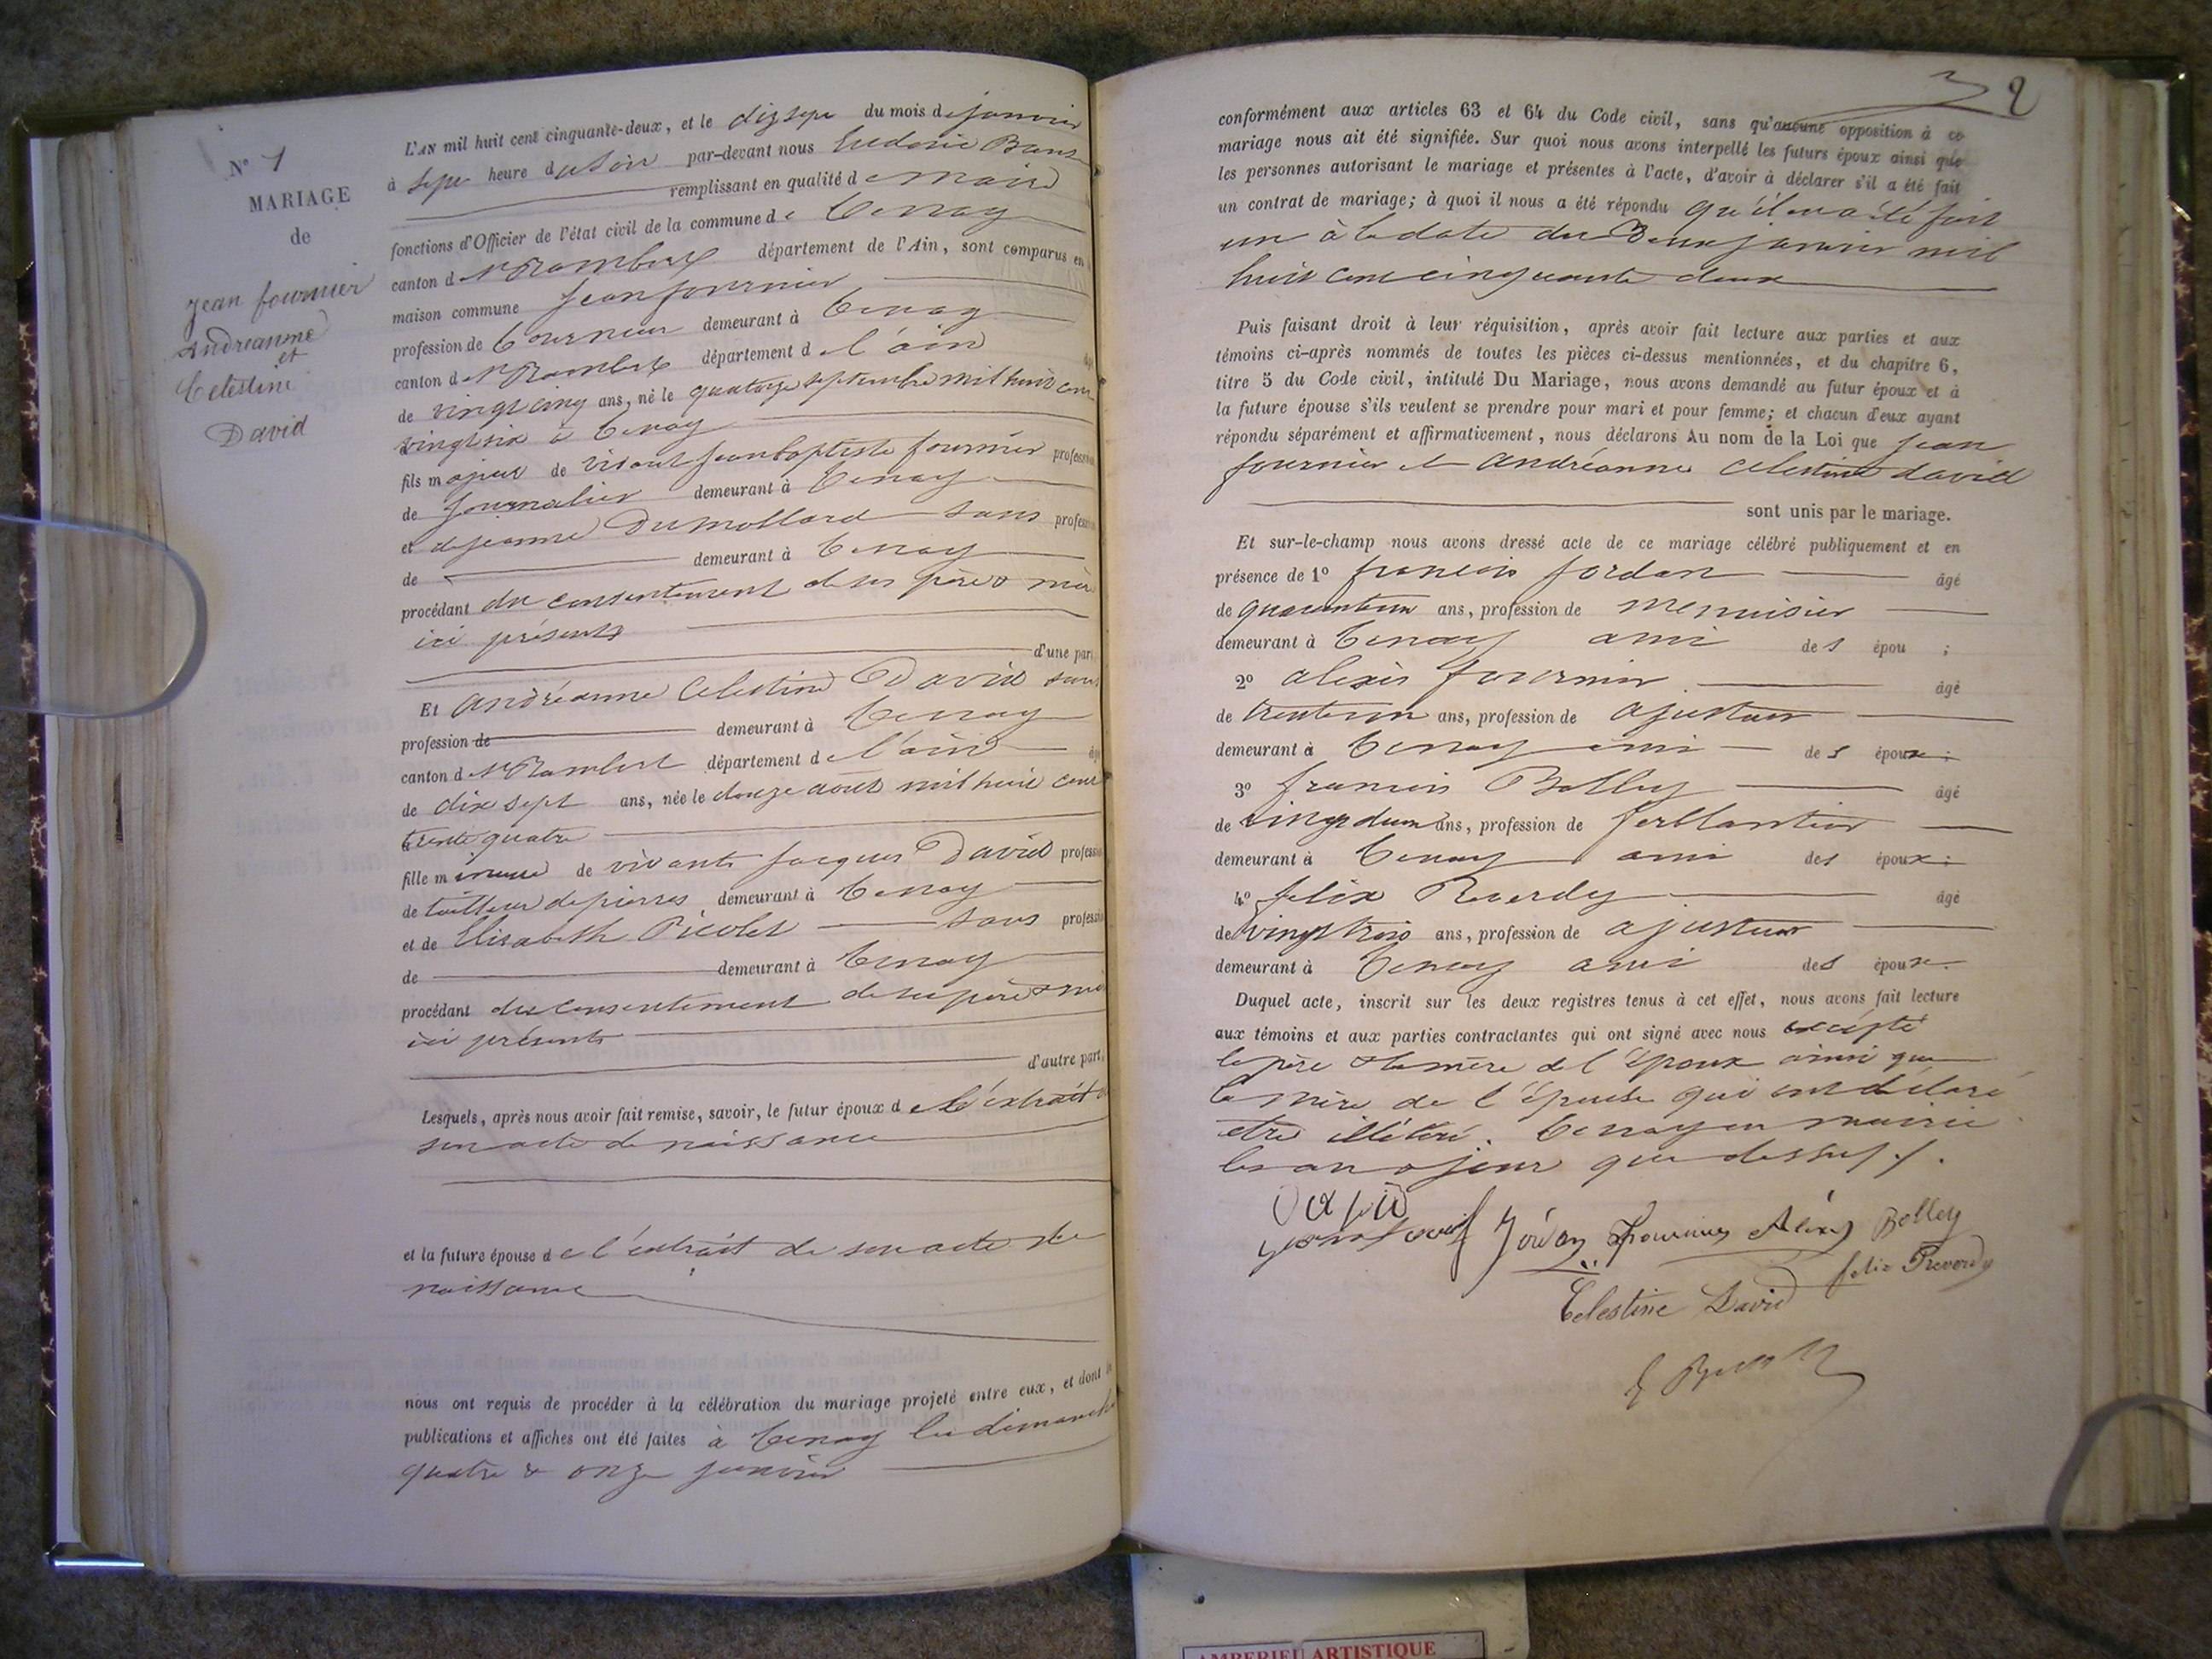 N° 1
MARIAGE
de
jean fournier
Andreanne
et
Celestine
David
L'AN mil huit cent cinquante-deux, et le dix sept du mois de janvier
à sept heure du Soir par-devant nous
remplissant en qualité de maire
fonctions d'Officier de l'état civil de la commune de Tenay
canton d St Rambert département de l'Ain, sont comparus en
maison commune Jean fournier
profession de tourneur demeurant à Tenay
canton d St Rambert département de l'ain
de vingt cinq ans, né le quatorze septembre mil huit cent
vingt six à Tenay
fils majeur de vivant jean baptiste fournier profession
de journalier demeurant à Tenay
et de jeanne Dumollard sans profession
de demeurant à Tenay
procédant du consentement de ses père & mère
ici présents
d'une part
Et andréanne Celestine David sans
profession de demeurant à Tenay
canton d St Rambert département de l'ain
de dix sept ans, née le douze aout mil huit cent
trente quatre
fille mineure de vivants jacques David profession
de tailleur de pierres demeurant à Tenay
et de Elisabeth Picolet sans profession
de demeurant à Tenay
procédant du consentement de ses père & mère
ici présents
d'autre part.
Lesquels, après nous avoir fait remise, savoir, le futur époux de l'extrait de
son acte de naissance
et la future épouse de l'extrait de son acte de
naissance
nous ont requis de procéder à la célébration du mariage projeté entre eux, et dont les
publications et affiches ont été faites à Tenay les dimanche
quatre & onze janvier
2
conformément aux articles 63 et 64 du Code civil, sans qu'aucune opposition à ce
mariage nous ait été signifiée. Sur quoi nous avons interpellé les futurs époux ainsi que
les personnes autorisant le mariage et présentes à l'acte, d'avoir à déclarer s'il a été fait
un contrat de mariage; à quoi il nous a été répondu qu'il en a été fait
un à la date du Deux janvier mil
huit cent cinquante deux
Puis faisant droit à leur réquisition, après avoir fait lecture aux parties et aux
témoins ci-après nommés de toutes les pièces ci-dessus mentionnées, et du chapitre 6,
titre 5 du Code civil, intitulé Du Mariage, nous avons demandé au futur époux et à
la future épouse s'ils veulent se prendre pour mari et pour femme; et chacun d'eux ayant
répondu séparément et affirmativement, nous déclarons Au nom de la Loi que jean
fournier et andréanne celestine david
sont unis par le mariage.
Et sur-le-champ nous avons dressé acte de ce mariage célébré publiquement et en
présence de 1° francois Jordan âgé
de quarante un ans, profession de menuisier
demeurant à Tenay ami des épou ;
2° alexis fournier âgé
de trente un ans, profession de ajusteur
demeurant à Tenay ami des époux;
3° francois Belley âgé
de vingt deux ans, profession de ferblantier
demeurant à Tenay ami des époux;
4° felix Reverdy âgé
de vingt trois ans, profession de ajusteur
demeurant à Tenay ami des époux.
Duquel acte, inscrit sur les deux registres tenus à cet effet, nous avons fait lecture
aux témoins et aux parties contractantes qui ont signé avec nous excepté
le père & la mère de l'époux ainsi que
la mère de l'épouse qui ont déclaré
etre illétéré. Tenay en mairie
les an & jour que dessus ./.
David
Jordan Fournier Aléxis Belley
felix Reverdy
Celestine David
AMBERIEU ARTISTIQUE